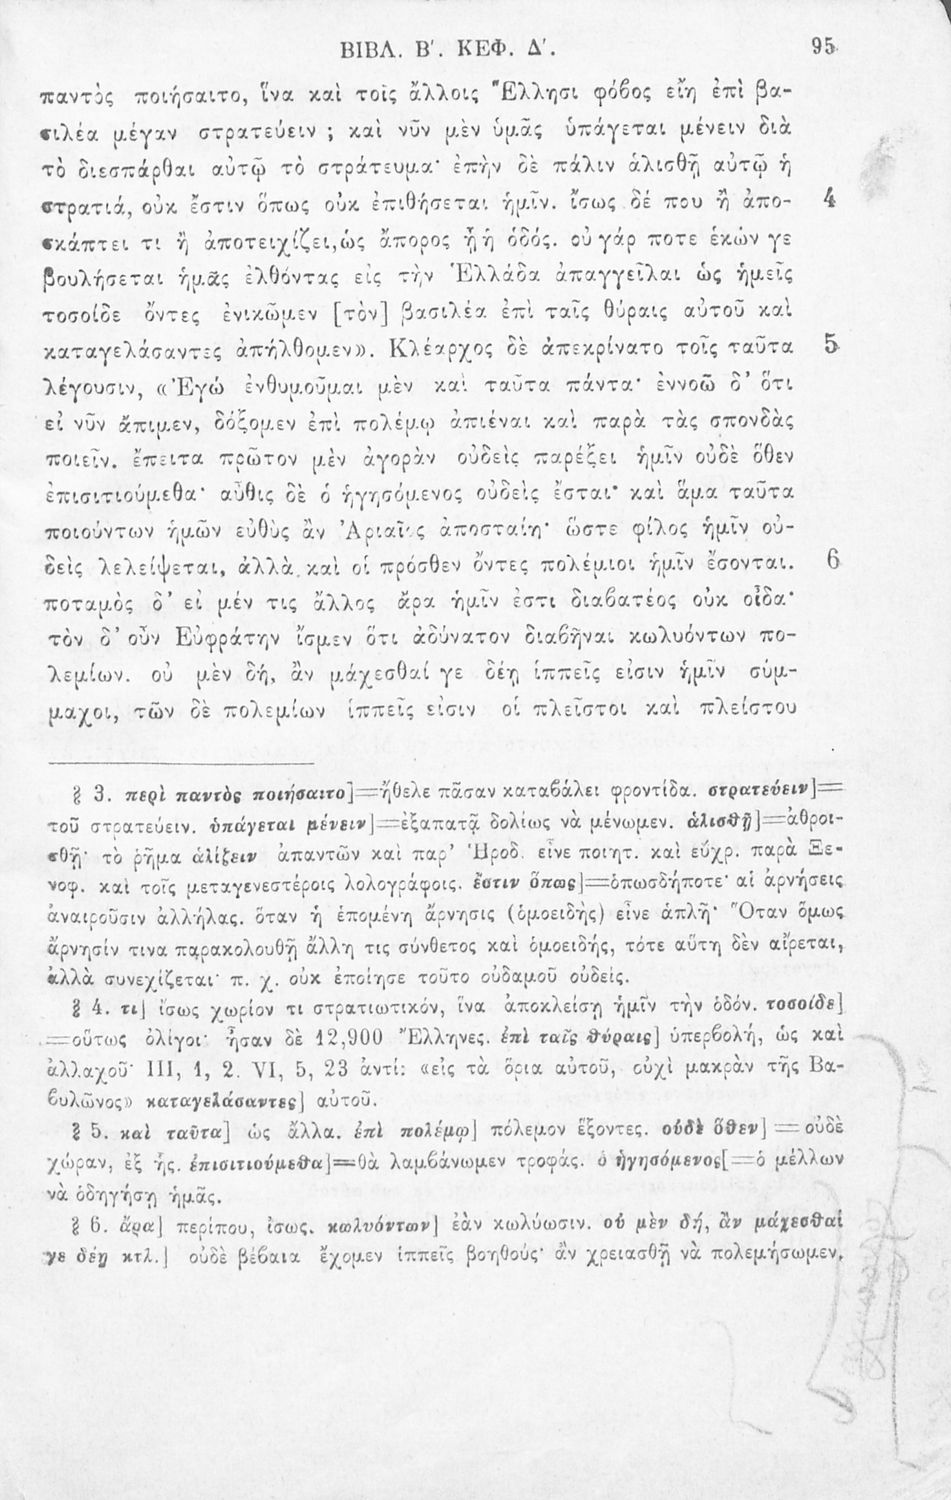 ΒΙΒΛ. Β'. ΚΕΦ. Δ'. 95
παντὸς ποιήσαιτο, ἵνα καὶ τοῖς ἄλλοις Ἕλλησι φόβος εἴη ἐπὶ βα-
σιλέα μέγαν στρατεύειν ; καὶ νῦν μὲν ὑμᾶς ὑπάγεται μένειν διὰ
τὸ διεσπάρθαι αὐτῷ τὸ στράτευμα· ἐπὴν δὲ πάλιν ἁλισθῇ αὐτῷ ἡ
στρατιά, οὐκ ἔστιν ὅπως οὐκ ἐπιθήσεται ἡμῖν. ἴσως δέ που ἢ ἀπο- 4
σκάπτει τι ἢ ἀποτειχίζει, ὡς ἄπορος ᾖ ἡ ὁδός. οὐ γάρ ποτε ἑκών γε
βουλήσεται ἡμᾶς ἐλθόντας εἰς τὴν Ἑλλάδα ἀπαγγεῖλαι ὡς ἡμεῖς
τοσοίδε ὄντες ἐνικῶμεν [τὸν] βασιλέα ἐπὶ ταῖς θύραις αὐτοῦ καὶ
καταγελάσαντες ἀπήλθομεν». Κλέαρχος δὲ ἀπεκρίνατο τοῖς ταῦτα 5
λέγουσιν, «Ἐγώ ἐνθυμοῦμαι μὲν καὶ ταῦτα πάντα· ἐννοῶ δ' ὅτι
εἰ νῦν ἄπιμεν, δόξομεν ἐπὶ πολέμῳ ἀπιέναι καὶ παρὰ τὰς σπονδὰς
ποιεῖν. ἔπειτα πρῶτον μὲν ἀγορὰν οὐδεὶς παρέξει ἡμῖν οὐδὲ ὅθεν
ἐπισιτιούμεθα· αὖθις δὲ ὁ ἡγησόμενος οὐδεὶς ἔσται· καὶ ἅμα ταῦτα
ποιούντων ἡμῶν εὐθὺς ἂν Ἀριαῖος ἀποσταίη· ὥστε φίλος ἡμῖν οὐ-
δεὶς λελείψεται, ἀλλὰ καὶ οἱ πρόσθεν ὄντες πολέμιοι ἡμῖν ἔσονται. 6
ποταμὸς δ' εἰ μέν τις ἄλλος ἄρα ἡμῖν ἐστι διαβατέος οὐκ οἶδα·
τὸν δ' οὖν Εὐφράτην ἴσμεν ὅτι ἀδύνατον διαβῆναι κωλυόντων πο-
λεμίων. οὐ μὲν δή, ἂν μάχεσθαί γε δέῃ ἱππεῖς εἰσιν ἡμῖν σύμ-
μαχοι, τῶν δὲ πολεμίων ἱππεῖς εἰσιν οἱ πλεῖστοι καὶ πλείστου
§ 3. περὶ παντὸς ποιήσαιτο]=ἤθελε πᾶσαν καταβάλει φροντίδα. στρατεύειν]=
τοῦ στρατεύειν. ὑπάγεται μένειν]=ἐξαπατᾷ δολίως νὰ μένωμεν. ἁλισθῇ]=ἀθροι-
σθῇ· τὸ ῥῆμα ἁλίζειν ἀπαντῶν καὶ παρ' Ἡροδ. εἶνε ποιητ. καὶ εὔχρ. παρὰ Ξε-
νοφ. καὶ τοῖς μεταγενεστέροις λολογράφοις. ἔστιν ὅπως]=ὁπωσδήποτε· αἱ ἀρνήσεις
ἀναιροῦσιν ἀλλήλας. ὅταν ἡ ἑπομένη ἄρνησις (ὁμοειδὴς) εἶνε ἁπλῆ· Ὅταν ὅμως
ἄρνησίν τινα παρακολουθῇ ἄλλη τις σύνθετος καὶ ὁμοειδής, τότε αὕτη δὲν αἴρεται,
ἀλλὰ συνεχίζεται· π. χ. οὐκ ἐποίησε τοῦτο οὐδαμοῦ οὐδείς.
§ 4. τι] ἴσως χωρίον τι στρατιωτικόν, ἵνα ἀποκλείσῃ ἡμῖν τὴν ὁδόν. τοσοίδε]
=οὕτως ὀλίγοι· ἦσαν δὲ 12,900 Ἕλληνες. ἐπὶ ταῖς θύραις] ὑπερβολή, ὡς καὶ
ἀλλαχοῦ· III, 1, 2. VI, 5, 23 ἀντί: «εἰς τὰ ὅρια αὐτοῦ, οὐχὶ μακρὰν τῆς Βα-
βυλῶνος» καταγελάσαντες] αὐτοῦ.
§ 5. καὶ ταῦτα] ὡς ἄλλα. ἐπὶ πολέμῳ] πόλεμον ἕξοντες. οὐδὲ ὅθεν] =οὐδὲ
χώραν, ἐξ ἧς. ἐπισιτιούμεθα]=θὰ λαμβάνωμεν τροφάς. ὁ ἡγησόμενος[=ὁ μέλλων
νὰ ὁδηγήσῃ ἡμᾶς.
§ 6. ἄρα] περίπου, ἴσως. κωλυόντων] ἐὰν κωλύωσιν. οὐ μὲν δή, ἂν μάχεσθαί
γε δέῃ κτλ.] οὐδὲ βέβαια ἔχομεν ἱππεῖς βοηθούς· ἂν χρειασθῇ νὰ πολεμήσωμεν,